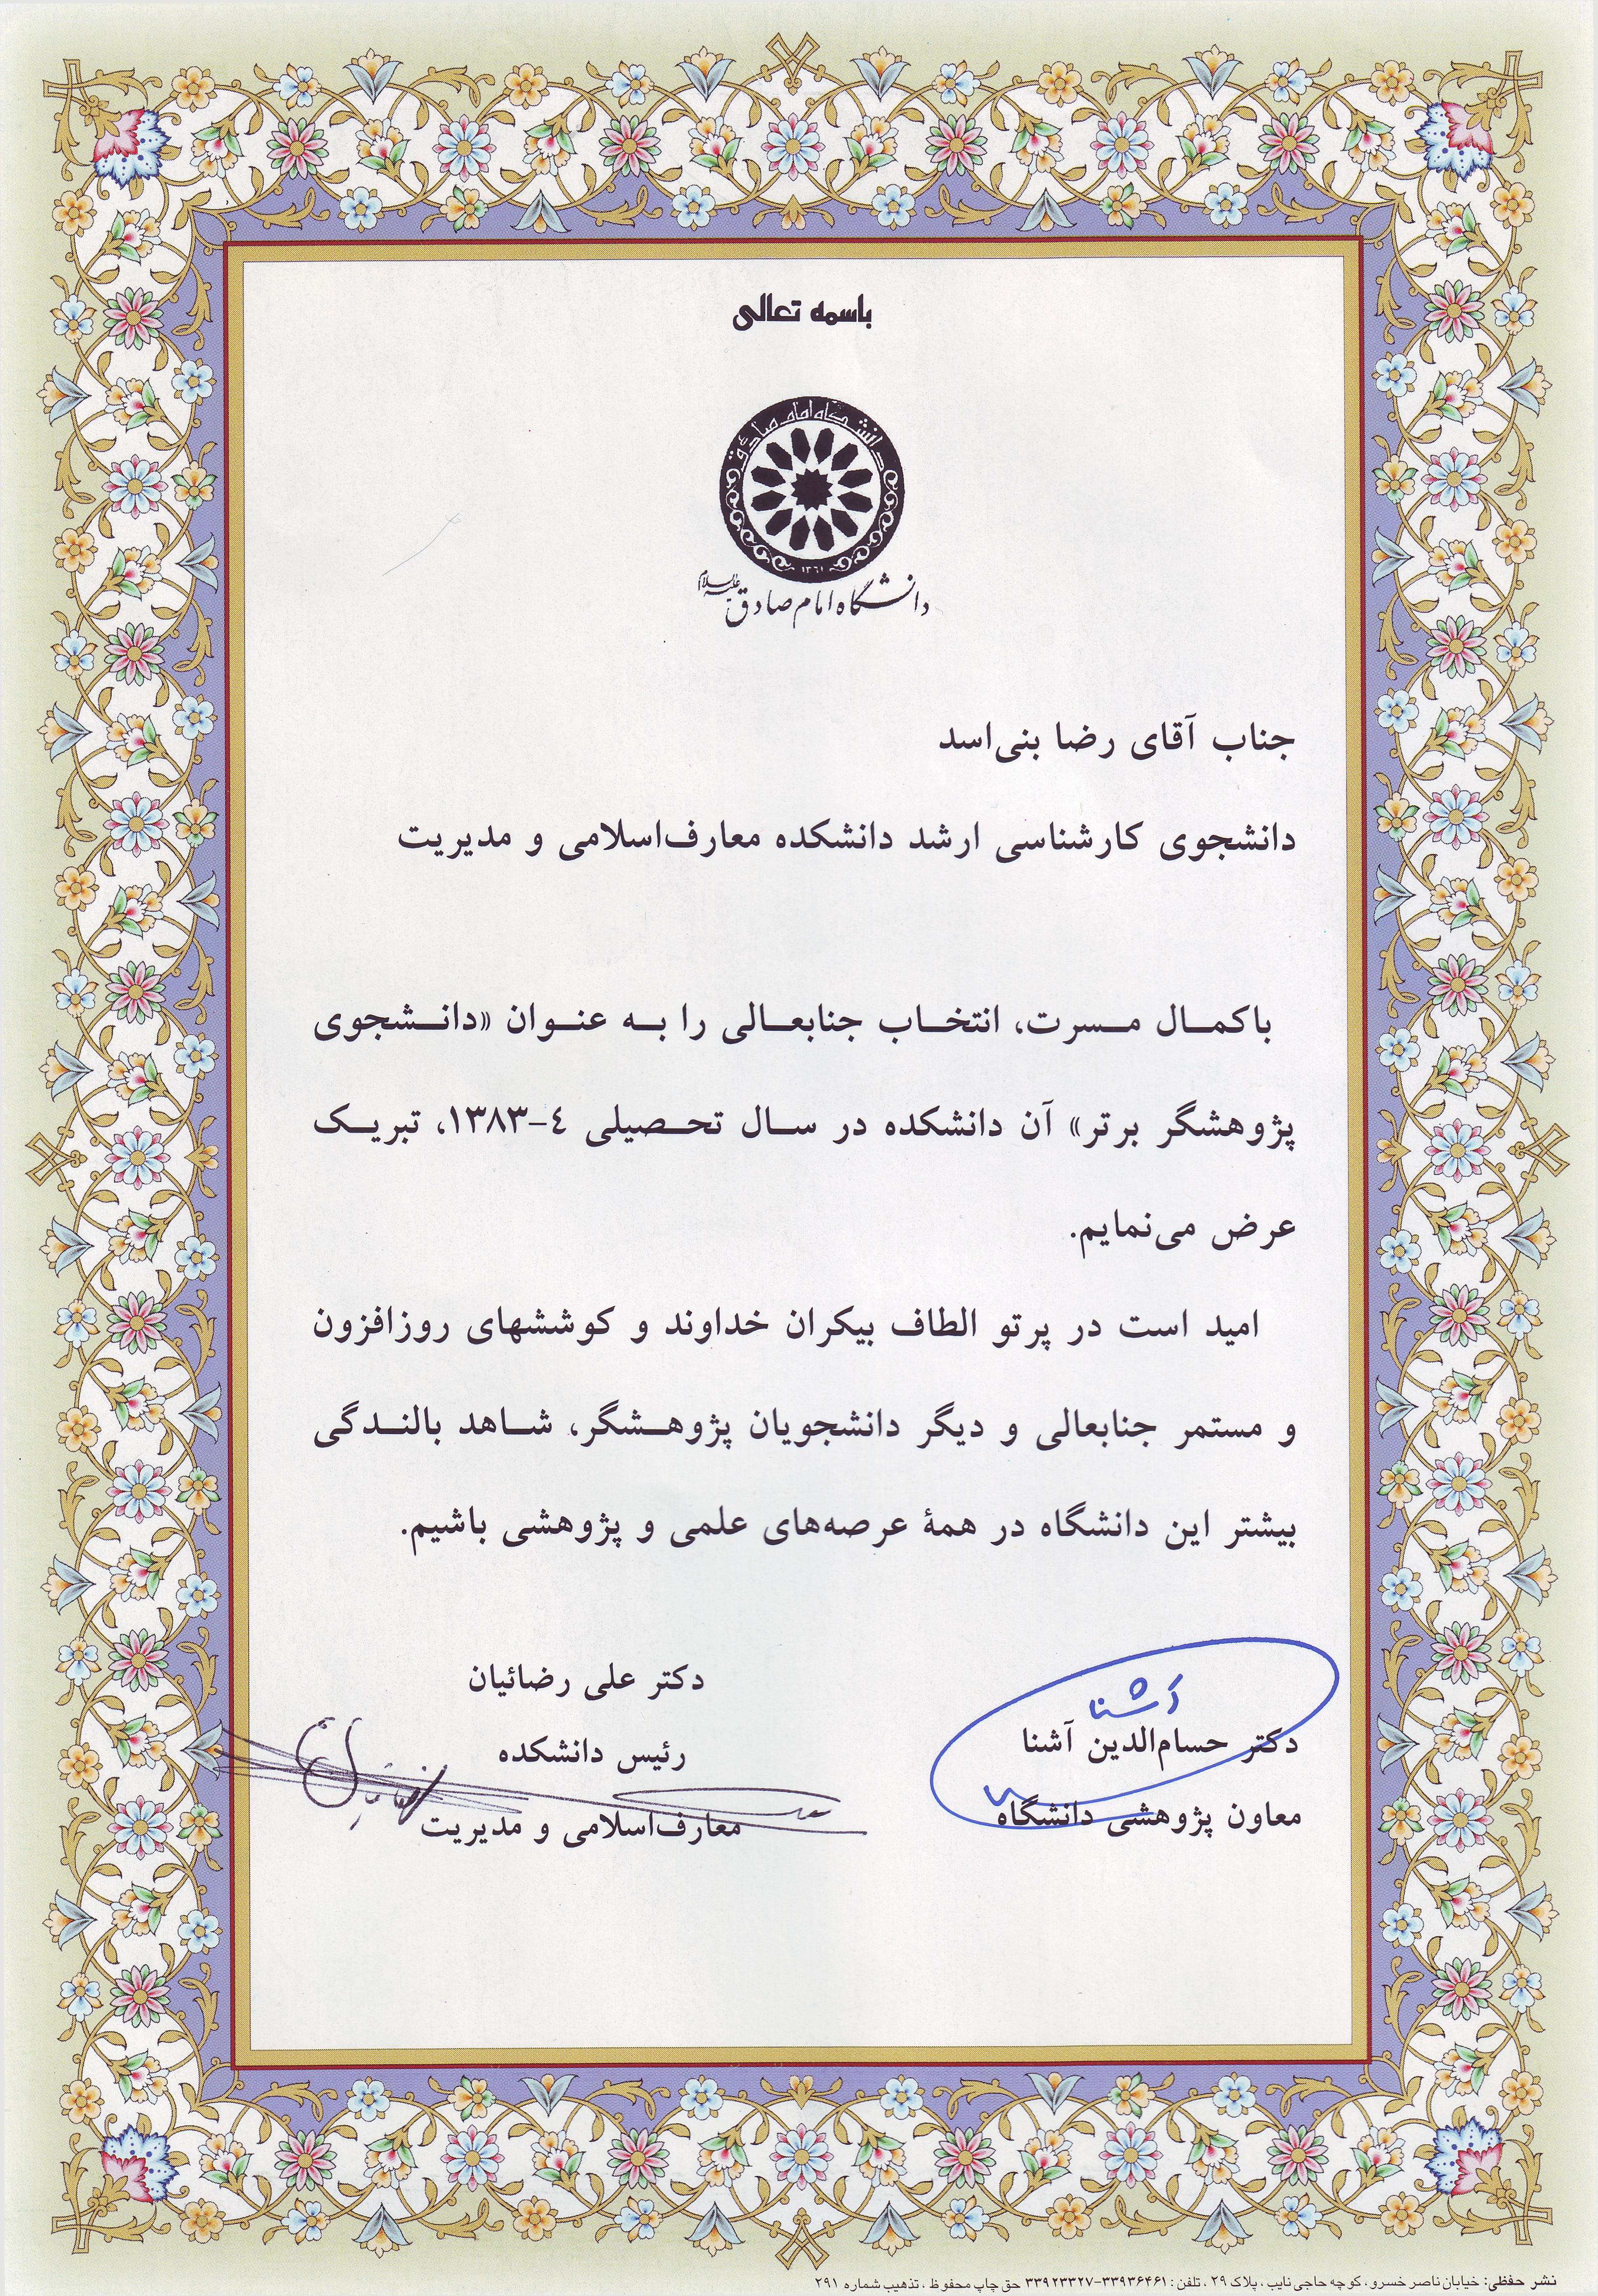 باسمه تعالی
دانشگاه امام صادق
١٣٦١
دانشگاه امام صادق علیه‌السلام
جناب آقای رضا بنی‌اسد
دانشجوی کارشناسی ارشد دانشکده معارف‌اسلامی و مدیریت
باکمال مسرت، انتخاب جنابعالی را به عنوان «دانشجوی
پژوهشگر برتر» آن دانشکده در سال تحصیلی ٤-١٣٨٣، تبریک
عرض می‌نمایم.
امید است در پرتو الطاف بیکران خداوند و کوششهای روزافزون
و مستمر جنابعالی و دیگر دانشجویان پژوهشگر، شاهد بالندگی
بیشتر این دانشگاه در همهٔ عرصه‌های علمی و پژوهشی باشیم.
آشنا
دکتر حسام‌الدین آشنا
معاون پژوهشی دانشگاه
دکتر علی رضائیان
رئیس دانشکده
معارف‌اسلامی و مدیریت
نشر حفظی: خیابان ناصر خسرو، کوچه حاجی نایب، پلاک ۲۹، تلفن: ۳۳۹۳۶۴۶۱-۳۳۹۲۳۳۲۷ حق چاپ محفوظ، تذهیب شماره ۲۹۱